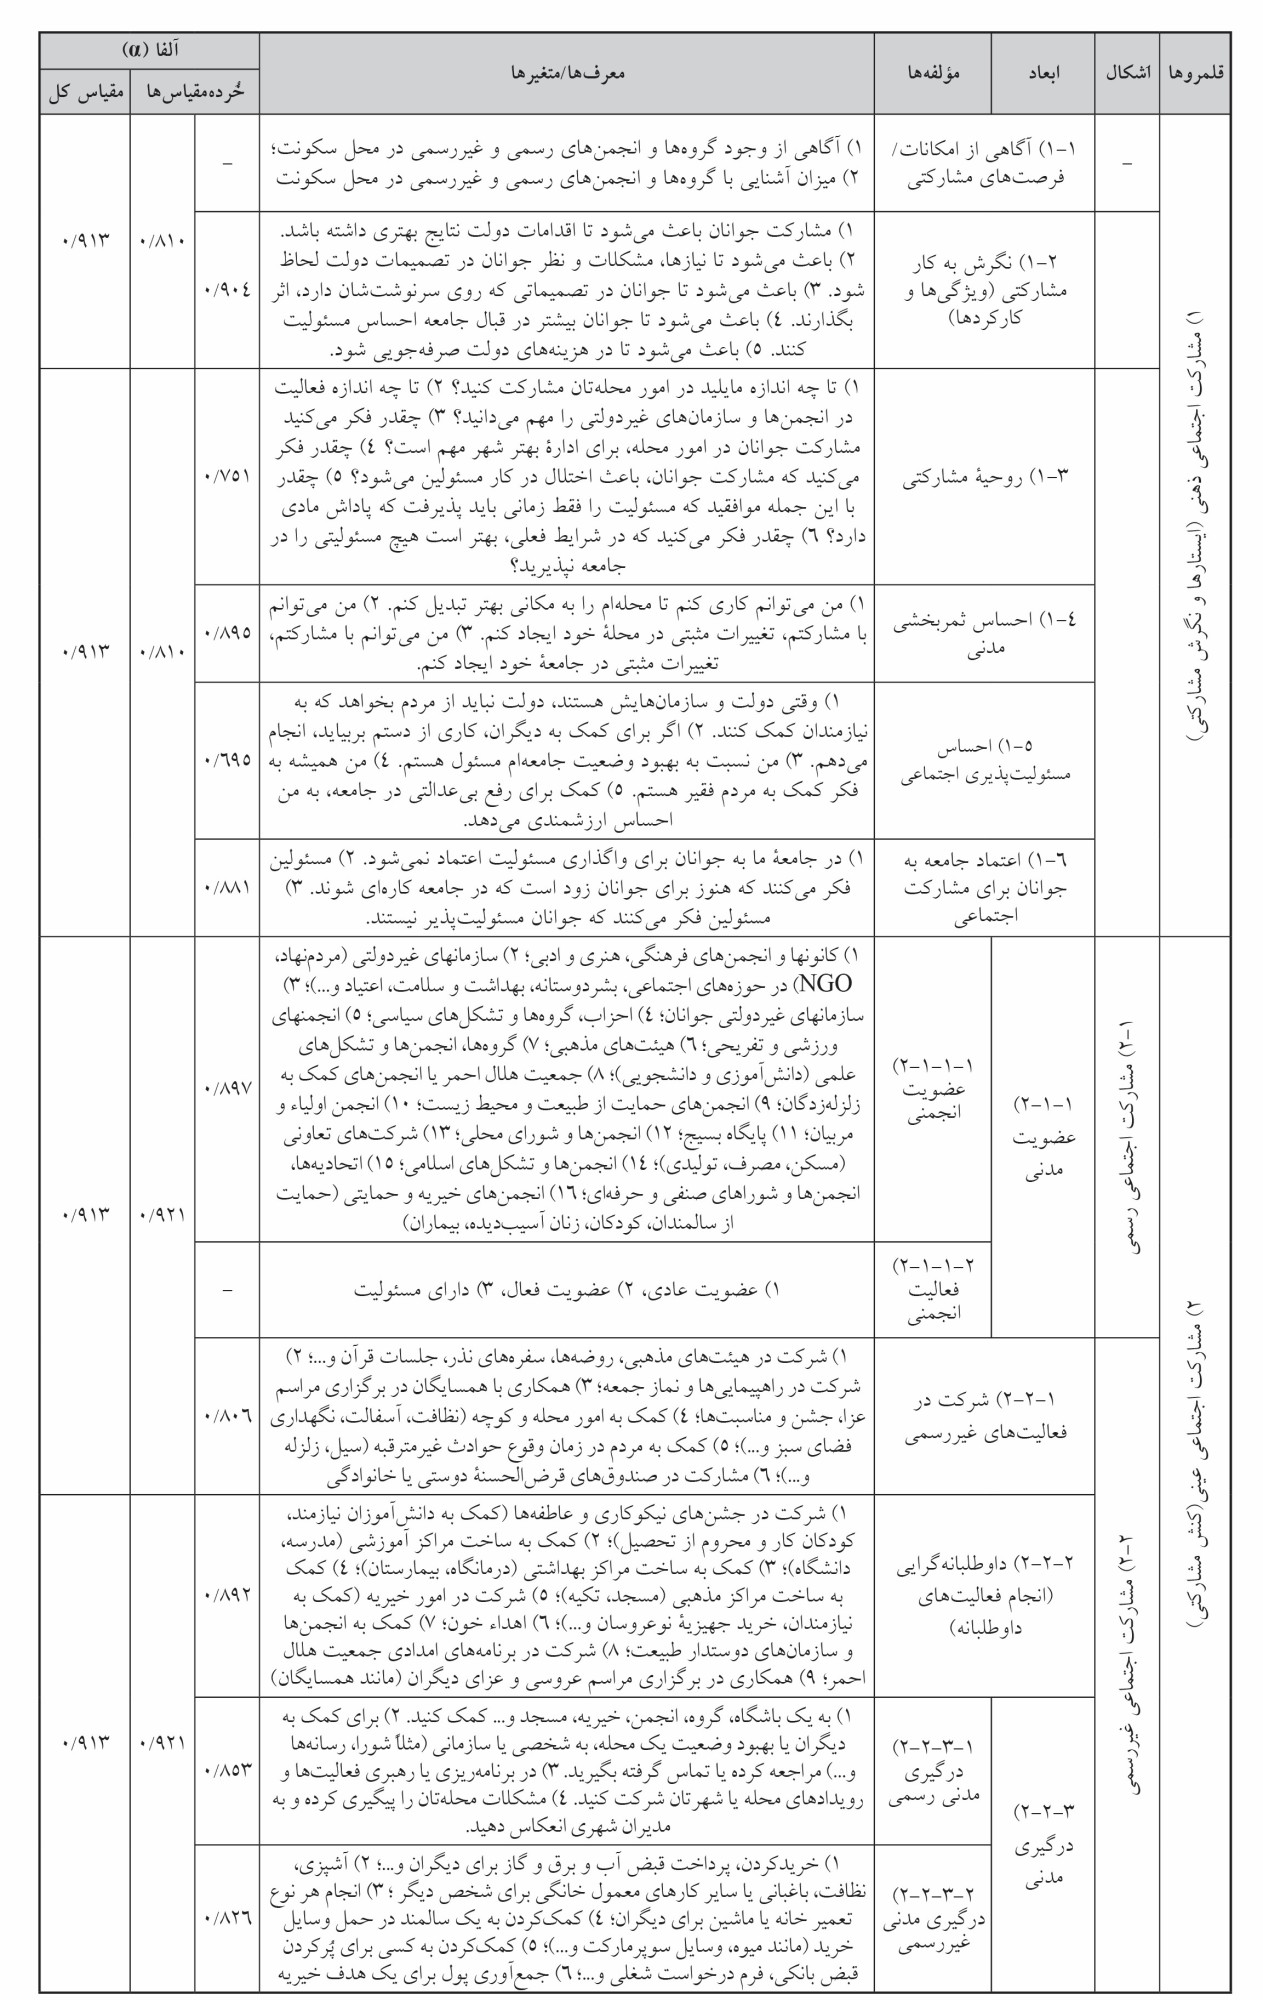 قلمروها
اشکال
ابعاد
مؤلفه‌ها
معرف‌ها/متغیرها
آلفا (α)
خُرده‌مقیاس‌ها
مقیاس کل
۱) مشارکت اجتماعی ذهنی (ایستارها و نگرش مشارکتی)
–
۱-۱) آگاهی از امکانات/
فرصت‌های مشارکتی
۱) آگاهی از وجود گروه‌ها و انجمن‌های رسمی و غیررسمی در محل سکونت؛
۲) میزان آشنایی با گروه‌ها و انجمن‌های رسمی و غیررسمی در محل سکونت
–
۰/۸۱۰
۰/۹۱۳
۱-۲) نگرش به کار
مشارکتی (ویژگی‌ها و
کارکردها)
۱) مشارکت جوانان باعث می‌شود تا اقدامات دولت نتایج بهتری داشته باشد.
۲) باعث می‌شود تا نیازها، مشکلات و نظر جوانان در تصمیمات دولت لحاظ
شود. ۳) باعث می‌شود تا جوانان در تصمیماتی که روی سرنوشت‌شان دارد، اثر
بگذارند. ۴) باعث می‌شود تا جوانان بیشتر در قبال جامعه احساس مسئولیت
کنند. ۵) باعث می‌شود تا در هزینه‌های دولت صرفه‌جویی شود.
۰/۹۰۴
۱-۳) روحیهٔ مشارکتی
۱) تا چه اندازه مایلید در امور محله‌تان مشارکت کنید؟ ۲) تا چه اندازه فعالیت
در انجمن‌ها و سازمان‌های غیردولتی را مهم می‌دانید؟ ۳) چقدر فکر می‌کنید
مشارکت جوانان در امور محله، برای ادارهٔ بهتر شهر مهم است؟ ۴) چقدر فکر
می‌کنید که مشارکت جوانان، باعث اختلال در کار مسئولین می‌شود؟ ۵) چقدر
با این جمله موافقید که مسئولیت را فقط زمانی باید پذیرفت که پاداش مادی
دارد؟ ۶) چقدر فکر می‌کنید که در شرایط فعلی، بهتر است هیچ مسئولیتی را در
جامعه نپذیرید؟
۰/۷۵۱
۰/۸۱۰
۰/۹۱۳
۱-۴) احساس ثمربخشی
مدنی
۱) من می‌توانم کاری کنم تا محله‌ام را به مکانی بهتر تبدیل کنم. ۲) من می‌توانم
با مشارکتم، تغییرات مثبتی در محلهٔ خود ایجاد کنم. ۳) من می‌توانم با مشارکتم،
تغییرات مثبتی در جامعهٔ خود ایجاد کنم.
۰/۸۹۵
۱-۵) احساس
مسئولیت‌پذیری اجتماعی
۱) وقتی دولت و سازمان‌هایش هستند، دولت نباید از مردم بخواهد که به
نیازمندان کمک کنند. ۲) اگر برای کمک به دیگران، کاری از دستم بربیاید، انجام
می‌دهم. ۳) من نسبت به بهبود وضعیت جامعه‌ام مسئول هستم. ۴) من همیشه به
فکر کمک به مردم فقیر هستم. ۵) کمک برای رفع بی‌عدالتی در جامعه، به من
احساس ارزشمندی می‌دهد.
۰/۶۹۵
۱-۶) اعتماد جامعه به
جوانان برای مشارکت
اجتماعی
۱) در جامعهٔ ما به جوانان برای واگذاری مسئولیت اعتماد نمی‌شود. ۲) مسئولین
فکر می‌کنند که هنوز برای جوانان زود است که در جامعه کاره‌ای شوند. ۳)
مسئولین فکر می‌کنند که جوانان مسئولیت‌پذیر نیستند.
۰/۸۸۱
۲) مشارکت اجتماعی عینی(کنش مشارکتی)
۲-۱) مشارکت اجتماعی رسمی
۲-۱-۱)
عضویت
مدنی
۲-۱-۱-۱)
عضویت
انجمنی
۱) کانونها و انجمن‌های فرهنگی، هنری و ادبی؛ ۲) سازمانهای غیردولتی (مردم‌نهاد،
NGO) در حوزه‌های اجتماعی، بشردوستانه، بهداشت و سلامت، اعتیاد و...)؛ ۳)
سازمانهای غیردولتی جوانان؛ ۴) احزاب، گروه‌ها و تشکل‌های سیاسی؛ ۵) انجمنهای
ورزشی و تفریحی؛ ۶) هیئت‌های مذهبی؛ ۷) گروه‌ها، انجمن‌ها و تشکل‌های
علمی (دانش‌آموزی و دانشجویی)؛ ۸) جمعیت هلال احمر یا انجمن‌های کمک به
زلزله‌زدگان؛ ۹) انجمن‌های حمایت از طبیعت و محیط زیست؛ ۱۰) انجمن اولیاء و
مربیان؛ ۱۱) پایگاه بسیج؛ ۱۲) انجمن‌ها و شورای محلی؛ ۱۳) شرکت‌های تعاونی
(مسکن، مصرف، تولیدی)؛ ۱۴) انجمن‌ها و تشکل‌های اسلامی؛ ۱۵) اتحادیه‌ها،
انجمن‌ها و شوراهای صنفی و حرفه‌ای؛ ۱۶) انجمن‌های خیریه و حمایتی (حمایت
از سالمندان، کودکان، زنان آسیب‌دیده، بیماران)
۰/۸۹۷
۰/۹۲۱
۰/۹۱۳
۲-۱-۱-۲)
فعالیت
انجمنی
۱) عضویت عادی، ۲) عضویت فعال، ۳) دارای مسئولیت
–
۲-۲) مشارکت اجتماعی غیررسمی
۲-۲-۱) شرکت در
فعالیت‌های غیررسمی
۱) شرکت در هیئت‌های مذهبی، روضه‌ها، سفره‌های نذر، جلسات قرآن و...؛ ۲)
شرکت در راهپیمایی‌ها و نماز جمعه؛ ۳) همکاری با همسایگان در برگزاری مراسم
عزا، جشن و مناسبت‌ها؛ ۴) کمک به امور محله و کوچه (نظافت، آسفالت، نگهداری
فضای سبز و...)؛ ۵) کمک به مردم در زمان وقوع حوادث غیرمترقبه (سیل، زلزله
و...)؛ ۶) مشارکت در صندوق‌های قرض‌الحسنهٔ دوستی یا خانوادگی
۰/۸۰۶
۲-۲-۲) داوطلبانه‌گرایی
(انجام فعالیت‌های
داوطلبانه)
۱) شرکت در جشن‌های نیکوکاری و عاطفه‌ها (کمک به دانش‌آموزان نیازمند،
کودکان کار و محروم از تحصیل)؛ ۲) کمک به ساخت مراکز آموزشی (مدرسه،
دانشگاه)؛ ۳) کمک به ساخت مراکز بهداشتی (درمانگاه، بیمارستان)؛ ۴) کمک
به ساخت مراکز مذهبی (مسجد، تکیه)؛ ۵) شرکت در امور خیریه (کمک به
نیازمندان، خرید جهیزیهٔ نوعروسان و...)؛ ۶) اهداء خون؛ ۷) کمک به انجمن‌ها
و سازمان‌های دوستدار طبیعت؛ ۸) شرکت در برنامه‌های امدادی جمعیت هلال
احمر؛ ۹) همکاری در برگزاری مراسم عروسی و عزای دیگران (مانند همسایگان)
۰/۸۹۲
۰/۹۲۱
۰/۹۱۳
۲-۲-۳)
درگیری
مدنی
۲-۲-۳-۱)
درگیری
مدنی رسمی
۱) به یک باشگاه، گروه، انجمن، خیریه، مسجد و... کمک کنید. ۲) برای کمک به
دیگران یا بهبود وضعیت یک محله، به شخصی یا سازمانی (مثلاً شورا، رسانه‌ها
و...) مراجعه کرده یا تماس گرفته بگیرید. ۳) در برنامه‌ریزی یا رهبری فعالیت‌ها و
رویدادهای محله یا شهرتان شرکت کنید. ۴) مشکلات محله‌تان را پیگیری کرده و به
مدیران شهری انعکاس دهید.
۰/۸۵۳
۲-۲-۳-۲)
درگیری مدنی
غیررسمی
۱) خریدکردن، پرداخت قبض آب و برق و گاز برای دیگران و...؛ ۲) آشپزی،
نظافت، باغبانی یا سایر کارهای معمول خانگی برای شخص دیگر ؛ ۳) انجام هر نوع
تعمیر خانه یا ماشین برای دیگران؛ ۴) کمک‌کردن به یک سالمند در حمل وسایل
خرید (مانند میوه، وسایل سوپرمارکت و...)؛ ۵) کمک‌کردن به کسی برای پُرکردن
قبض بانکی، فرم درخواست شغلی و...؛ ۶) جمع‌آوری پول برای یک هدف خیریه
۰/۸۲۶